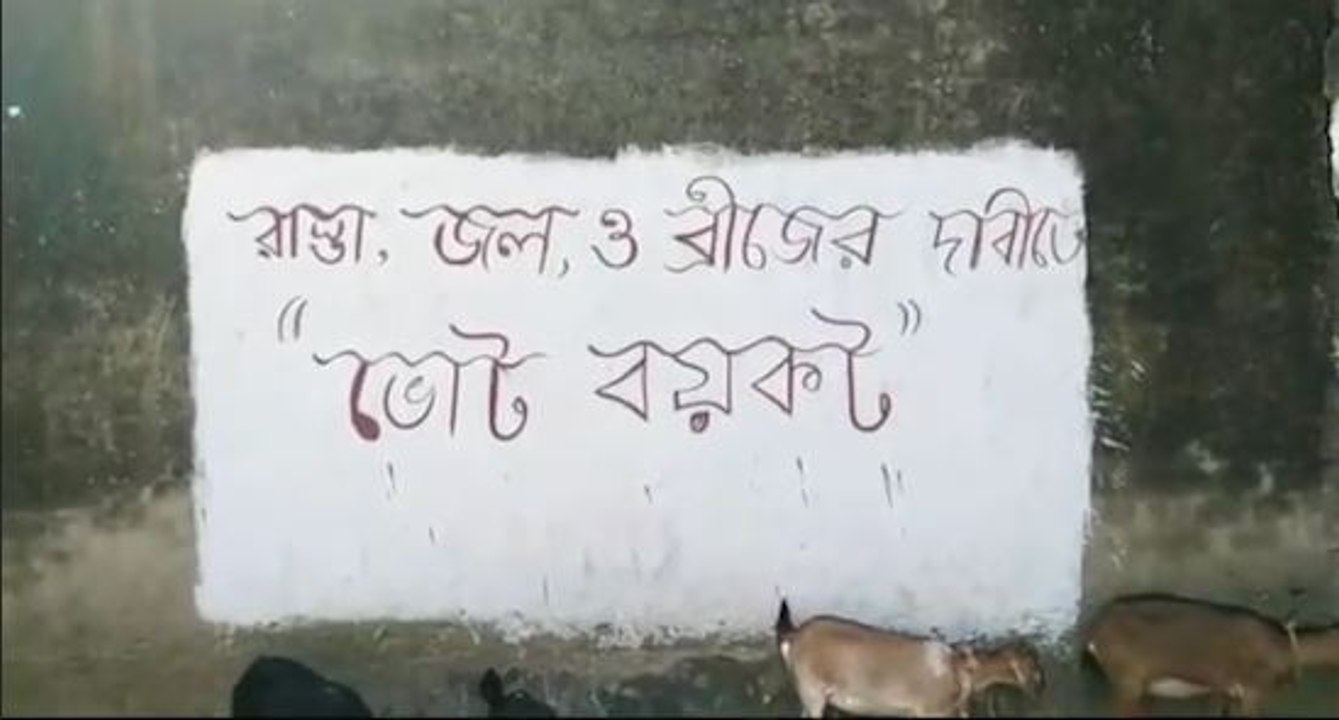 রাস্তা, জল, ও ব্রীজের দাবীতে
"ভোট বয়কট"